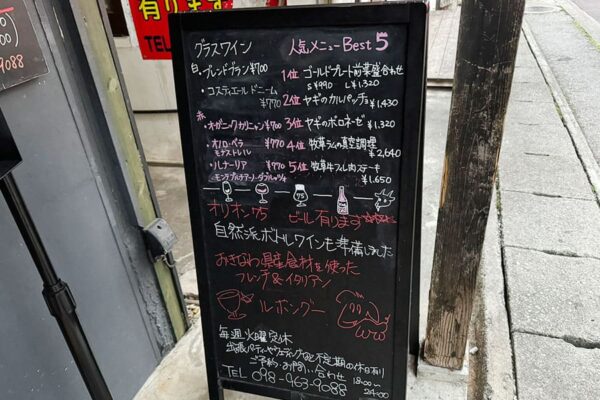 有ります
TEL
9088
グラスワイン
白・ブレンドブラン ¥700
・コスティエール ドニーム
¥770
赤
・オーガニックカリニャン ¥700
・オノロ・ベラ ¥770
モナストレル
・ルナーリア ¥770
モンテプルチアーノ・ダブルッツォ
人気メニューBest5
1位 ゴールドプレート前菜盛合わせ
S ¥990 L ¥1,320
2位 ヤギのカルパッチョ ¥1,430
3位 ヤギのボロネーゼ ¥1,320
4位 牧草ラムの真空調理
¥2,640
5位 牧草牛フィレ肉ステーキ
¥1,650
75
オリオン75 ビール有ります
自然派ボトルワインも準備しました
おきなわ県産食材を使った
フレンチ&イタリアン
ルボングー
毎週火曜定休
出張パーティーやウェディングなど不定期の休日有り
ご予約・お問い合わせ
TEL 098-963-9088
18:00〜
24:00